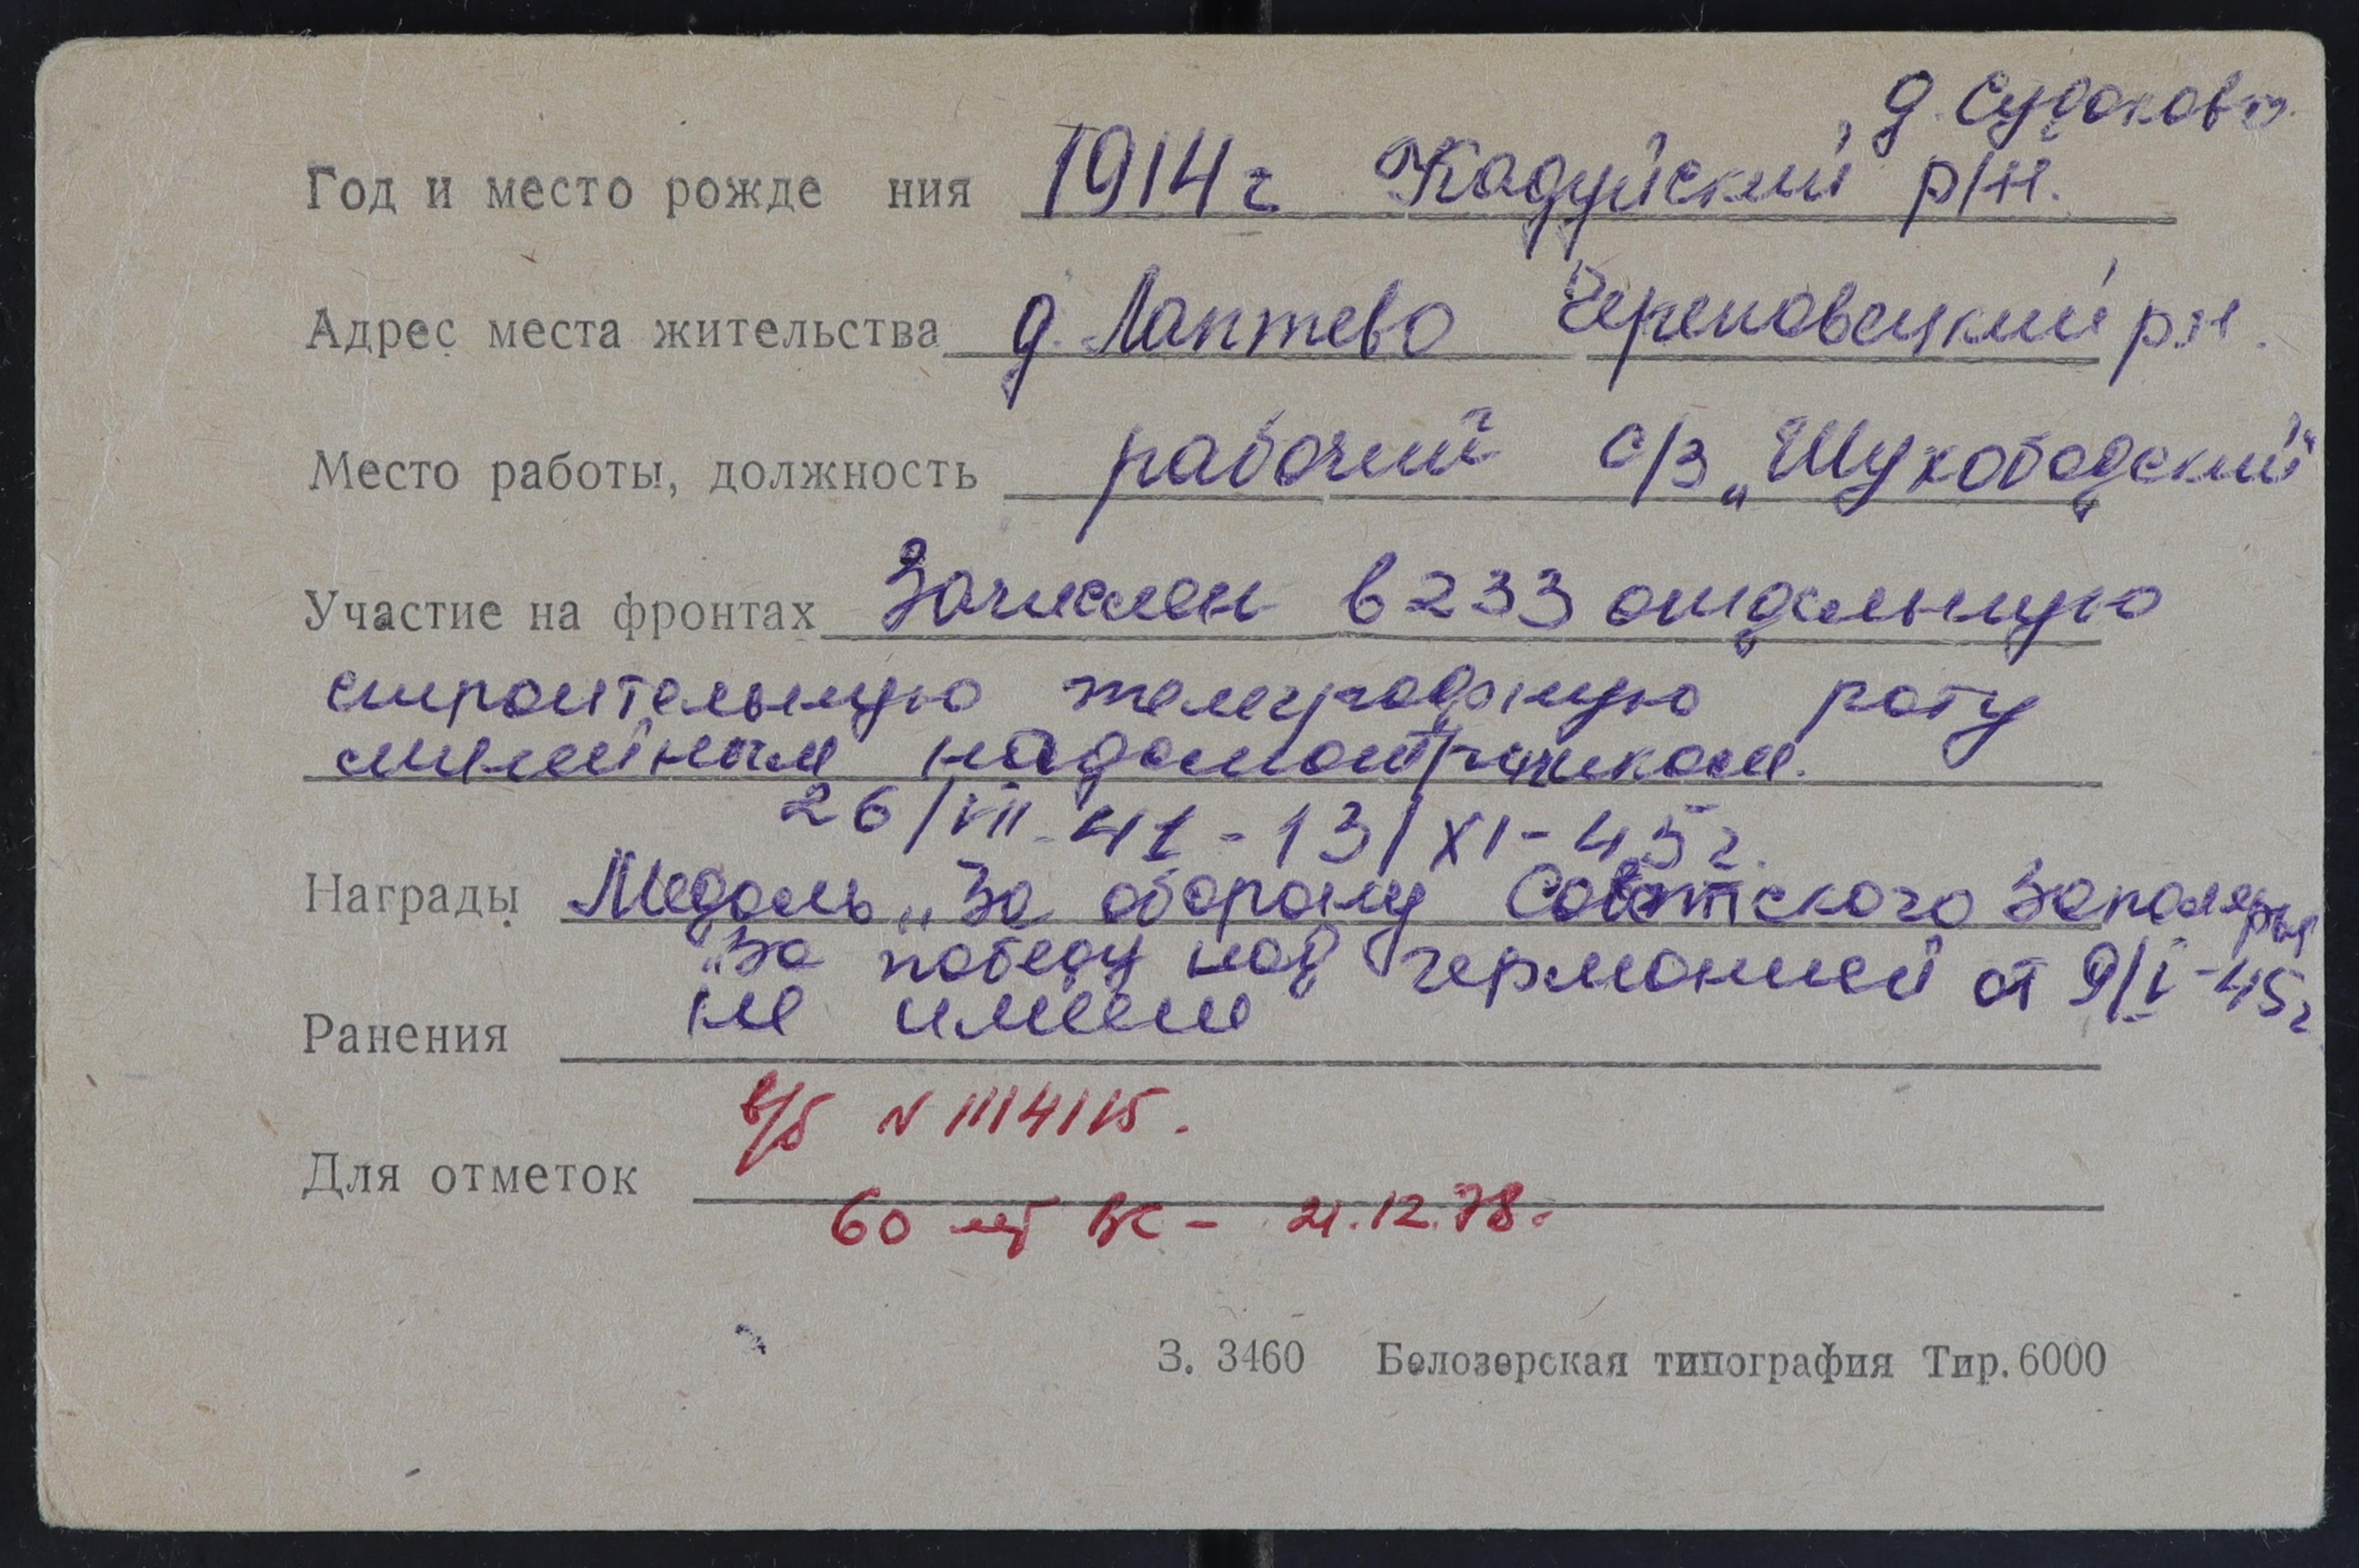 д. Судаково.
Год и место рожде ния 1914 г Кадуйский р/н.
Адрес места жительства д. Лаптево Череповецкий р.н.
Место работы, должность рабочий с/з „Шухободский"
Участие на фронтах Зачислен в 233 отдельную
строительную телеграфную роту
линейным надсмотрщиком.
26/VII-41-13/XI-45г.
Награды Медаль „За оборону Советского Заполярья
„За победу над Германией от 9/V-45г
Ранения не имеет
в/б N 1114115.
Для отметок
60 лет ВС - 21.12.78.
З. 3460 Белозерская типография Тир. 6000